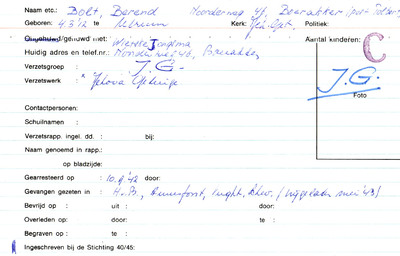 Naam etc.: Bolt, Berend Noorderweg 41, Boerakker
Geboren: 4.5.'12 te Ulrum Kerk: Politiek:
Ongehuwd/gehuwd met: Wietske Jongsma Aantal kinderen:
Huidig adres en telef.nr.:
C
Verzetsgroep : J.G.
Verzetswerk : Jehova Getuige
J.G.
Foto
Contactpersonen:
Schuilnamen :
Verzetsrapp. ingel. dd. : bij:
Naam genoemd in rapp.:
op bladzijde:
Gearresteerd op : 10.9.'42 door:
Gevangen gezeten in : H.v.B., Amersfoort, Vught,
Bevrijd op : uit : door:
Overleden op: door: te :
Begraven op : te :
Ingeschreven bij de Stichting 40/45: